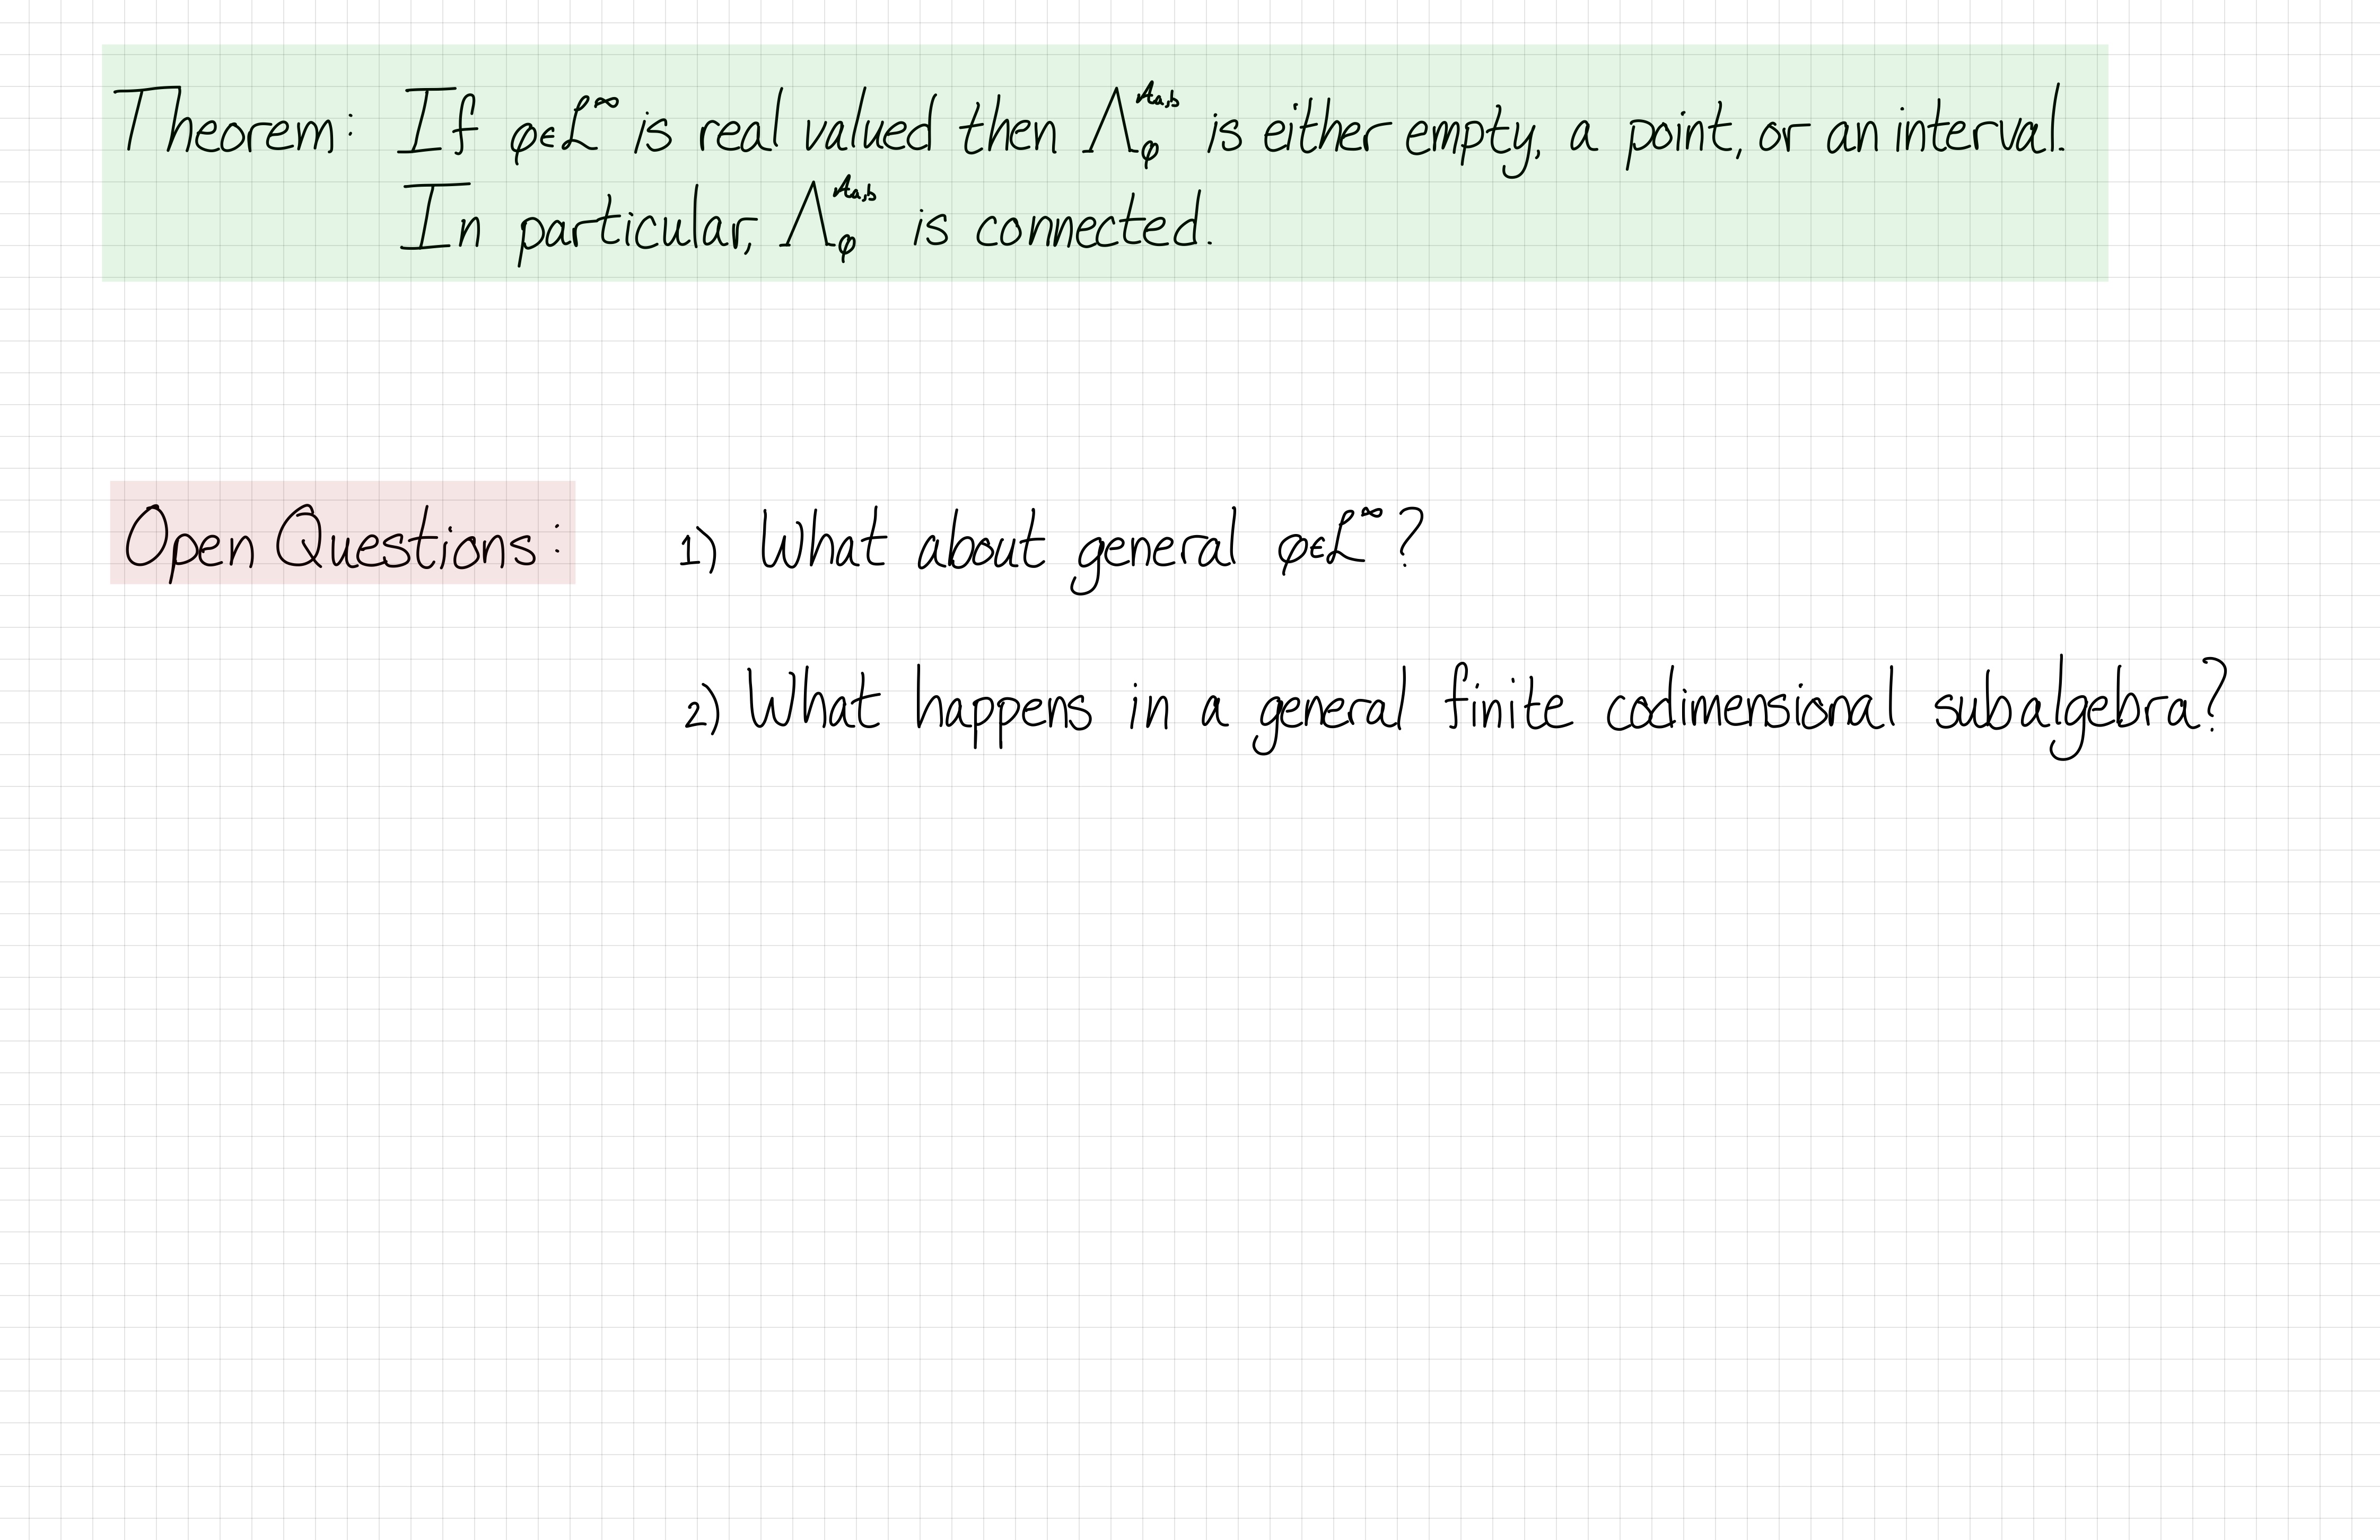 Theorem: If φ∈L^∞ is real valued then Λ_φ^{A_{a,b}} is either empty, a point, or an interval.
In particular, Λ_φ^{A_{a,b}} is connected.
Open Questions: 1) What about general φ∈L^∞?
2) What happens in a general finite codimensional subalgebra?